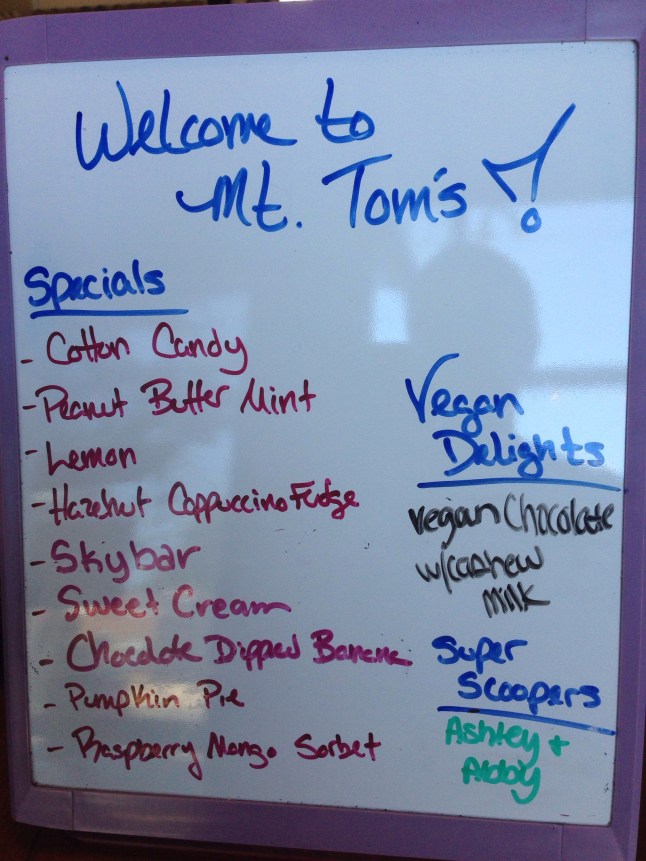 Welcome to
Mt. Tom's!
Specials
- Cotton Candy
- Peanut Butter Mint
- Lemon
- Hazelnut Cappuccino Fudge
- Skybar
- Sweet Cream
- Chocolate Dipped Banana
- Pumpkin Pie
- Raspberry Mango Sorbet
Vegan
Delights
vegan Chocolate
w/cashew
milk
Super
Scoopers
Ashley +